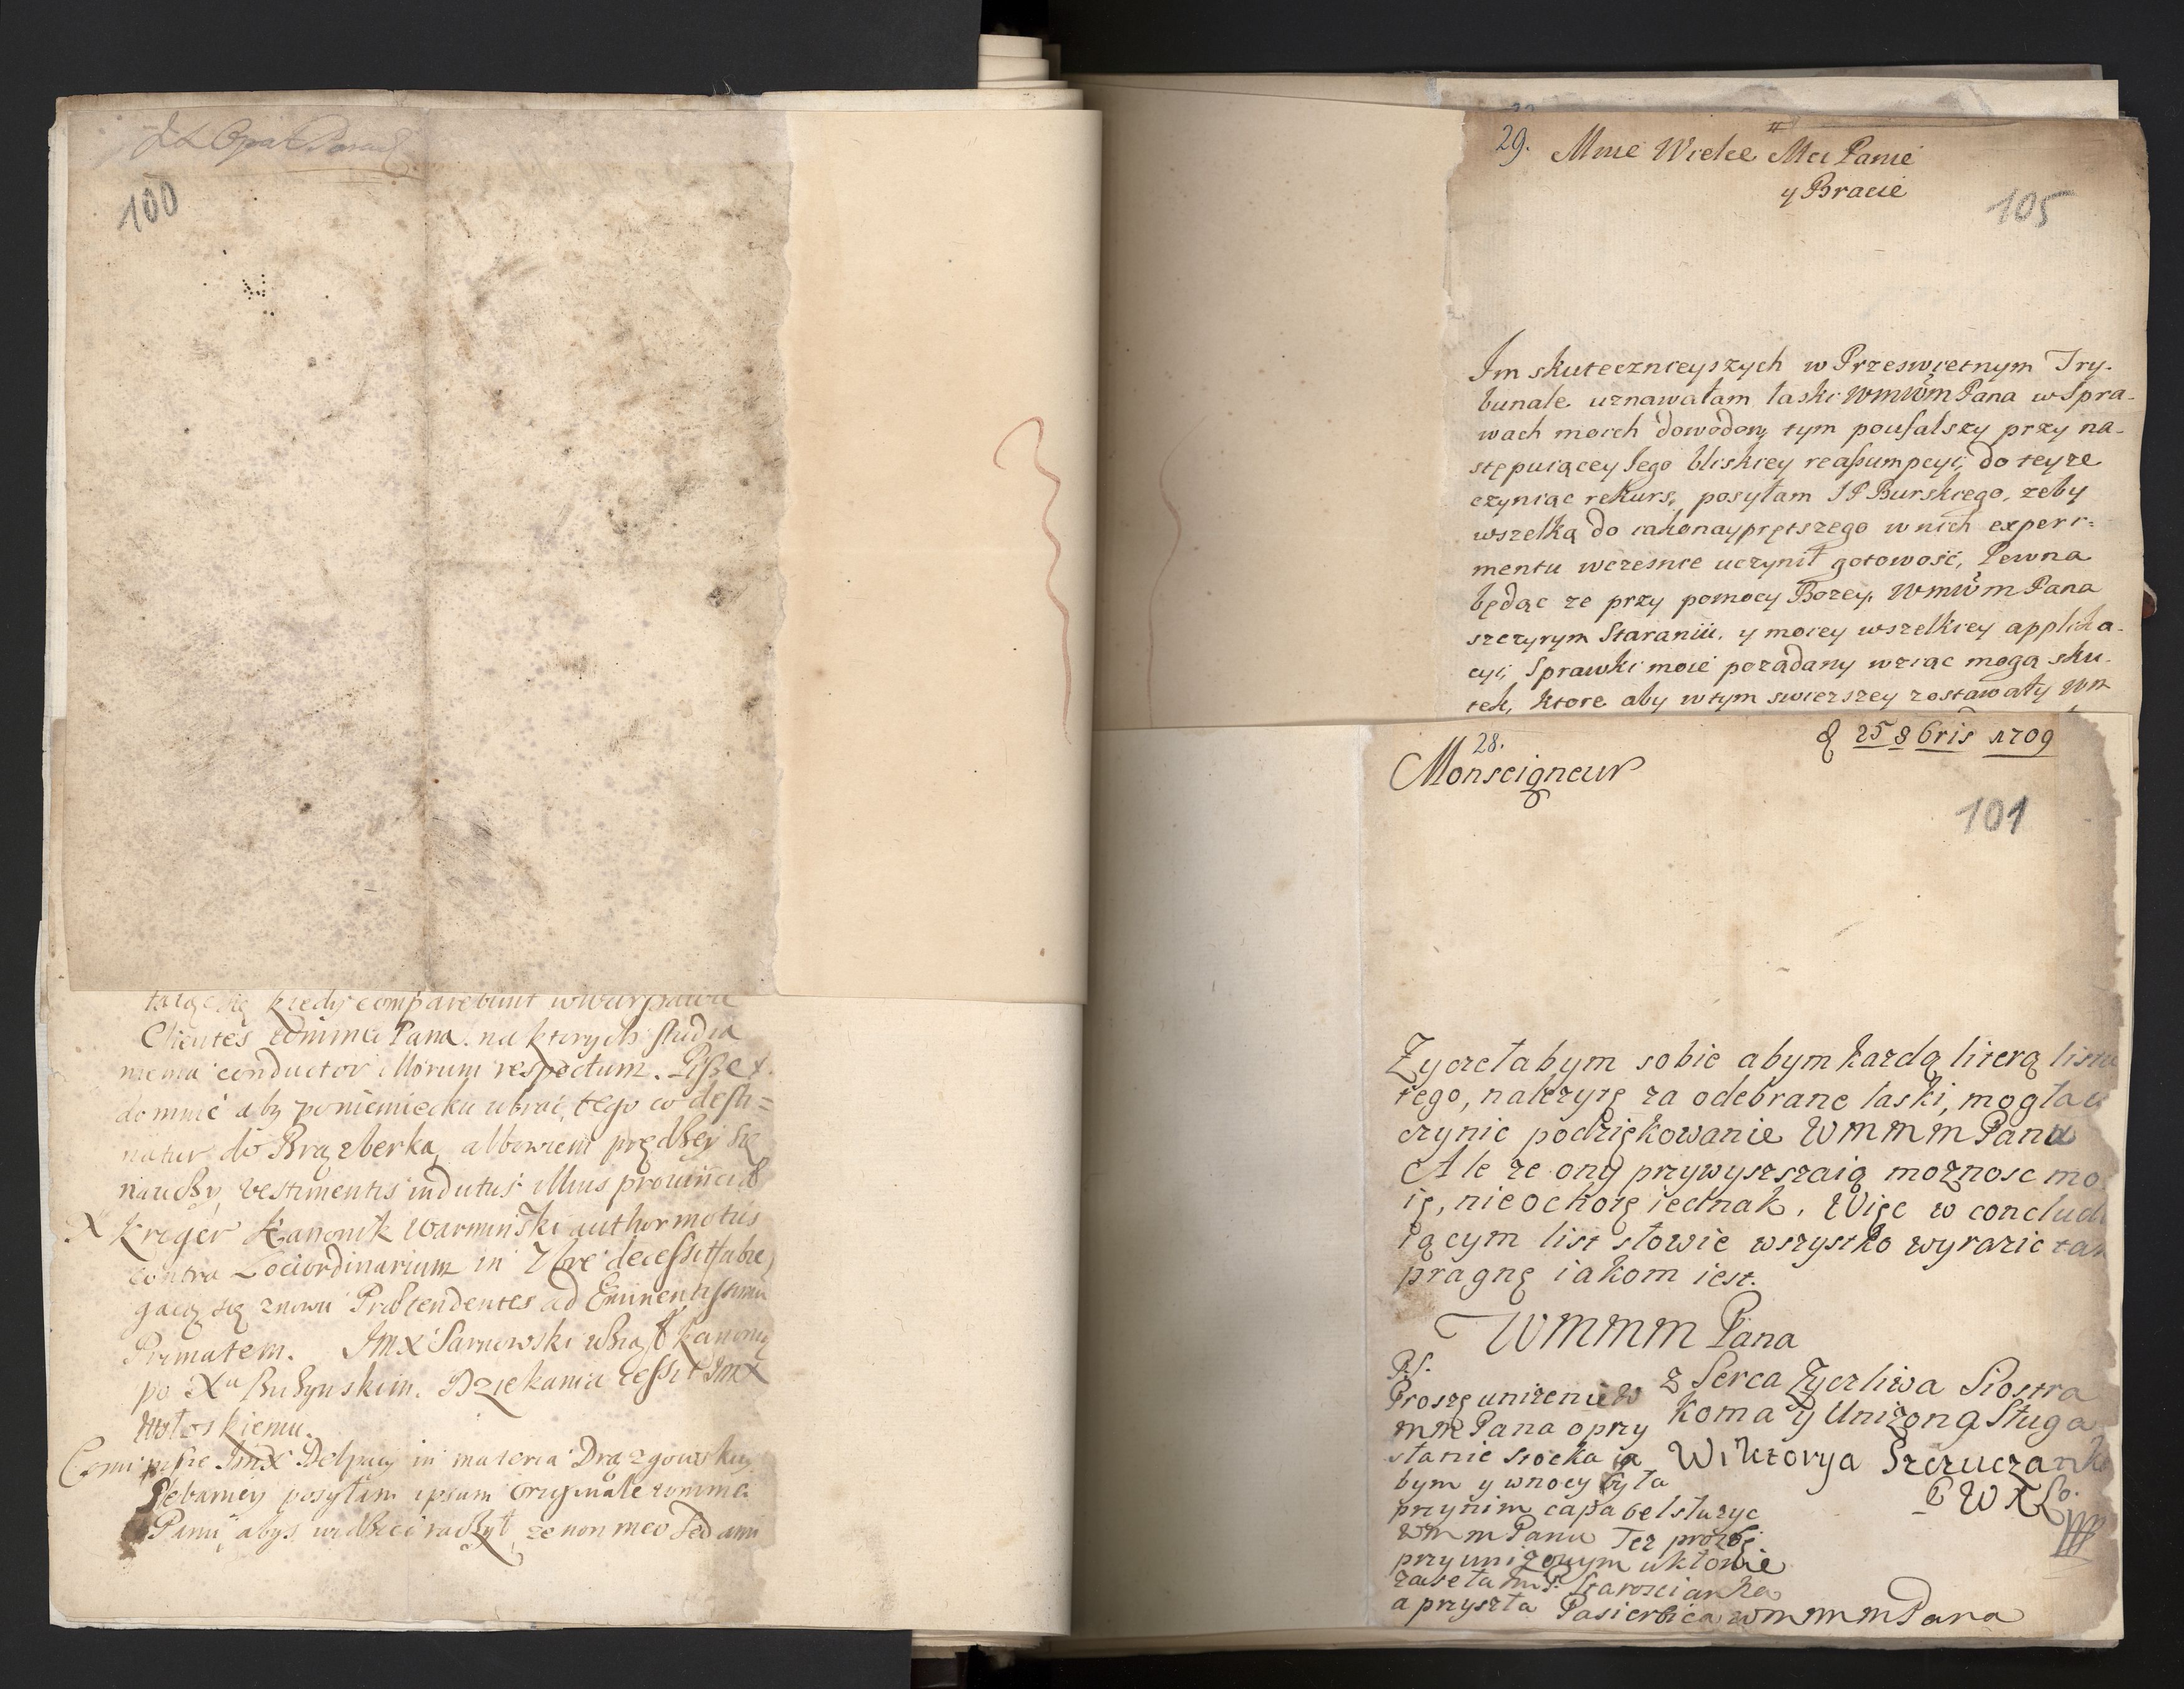 100
taiąc się kiedy comparebunt w Warszawie
Clientes wmmci Pana. na ktorych studia
niema conductor Morum respectum. Pisze x.
do mnie aby poniemiecku ubrać, tego co desti=
natur do Brązberka, albowiem prędzey się
nauczy vestimentis indutus illius provinciæ
X Kreger Kanonik Warminski author motus
contra Lociordinarium in 7bre decessit, ubie,
gaią się znowu Prætendentes ad Eminentissimum
Primatem. Jmx Sarnowski wziął kanonią
po Xu Buzynskim. Dziekania cessit Jmx
Włoskiemu.
in materia Drązgowskiey
posyłam ipsum originale wmmci
Panu, abyś widzieć raczył, ze non meo sed
29. Mnie Wielce Mci Panie
y Bracie
105
Im skutecznieyszych w Przeswietnym Try-
bunale uznawałam łaski WmWm Pana w Spra-
wach moich dowodow, tym poufalszy przy na-
stępuiącey Jego bliskiey reassumpcyi, do teyze
czyniąc rekurs, posyłam JP Burskiego, zeby
wszelką do iakonayprętszego w nich experi-
mentu wczesnie uczynił gotowość, Pewna
będąc ze przy pomocy Bozey, WmWm Pana
szczyrym Staraniu, y moiey wszelkiey applika-
cyi, Sprawki moie poządany wziąc mogą sku-
tek, ktore aby w tym swierszey zostawały Wm
28.
d 25 8bris 1709
Monseigneur
101
Zyczełabym sobie abym kazdą literą listu
tego, nalezytę za odebrane łaski, mogła u
czynic podziękowanie WMMM Panu
Ale ze ony przywyszszaią moznosc mo
ię, nie ochotę iednak, Więc w conclud
ącym list słowie wszystko wyrazic
pragnę iakom iest.
WMMM Pana
z Serca Zyczliwa Siostra
y Unizona Sługa
Wiktorya Szczuczanka
P.S.
Proszę unizenie W
mm Pana o przy
słanie
bym y w nocy była
przy nim capabel słuzyc
wmm Panu Tez prozbę
przy unizonym ukłonie
Staroscianka
a przyszła Pasierbica wmmm Pana